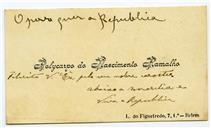 O povo quer a Republica
Polycarpo do Nascimento Ramalho
Felicito V. Ex.ª pelo seu nobre caracter
abaixo a monarchia
Viva a Republica
L. do Figueiredo, 7, 1.º — Belem